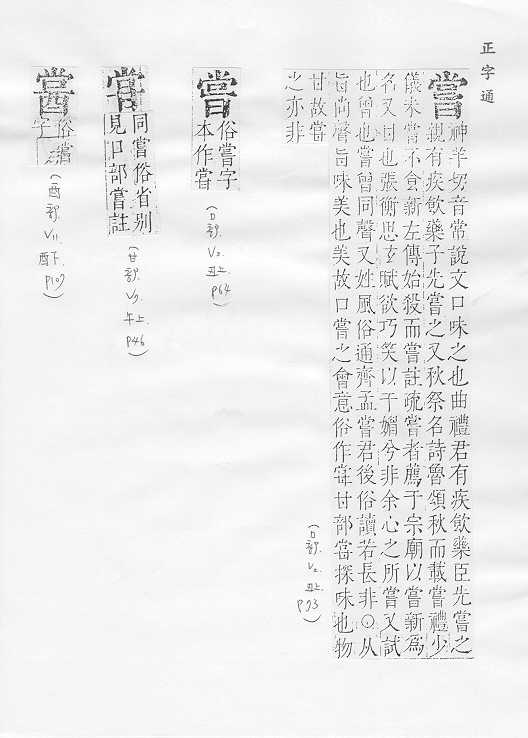 正字通
嘗
神羊切音常說文口味之也曲禮君有疾飲藥臣先嘗之
親有疾飲藥子先嘗之又秋祭名詩魯頌秋而載嘗禮少
儀未嘗不食新左傳始殺而嘗註疏嘗者薦于宗廟以嘗新爲
名又甘也張衡思玄賦欲巧笑以干媚兮非余心之所嘗又試
也曾也嘗曾同聲又姓風俗通齊孟嘗君後俗讀若長非○从
旨尚聲旨味美也美故口嘗之會意俗作甞甘部甞探味也物
甘故甞
之亦非
(口部. V2. 丑上. P73)
嚐
俗嘗字
本作嘗
(口部. V2. 丑上. P64)
甞
同嘗俗省别
見口部嘗註
(甘部. V7. 午上. P46)
俗嘗
字
(酉部. V11. 酉下. P107)